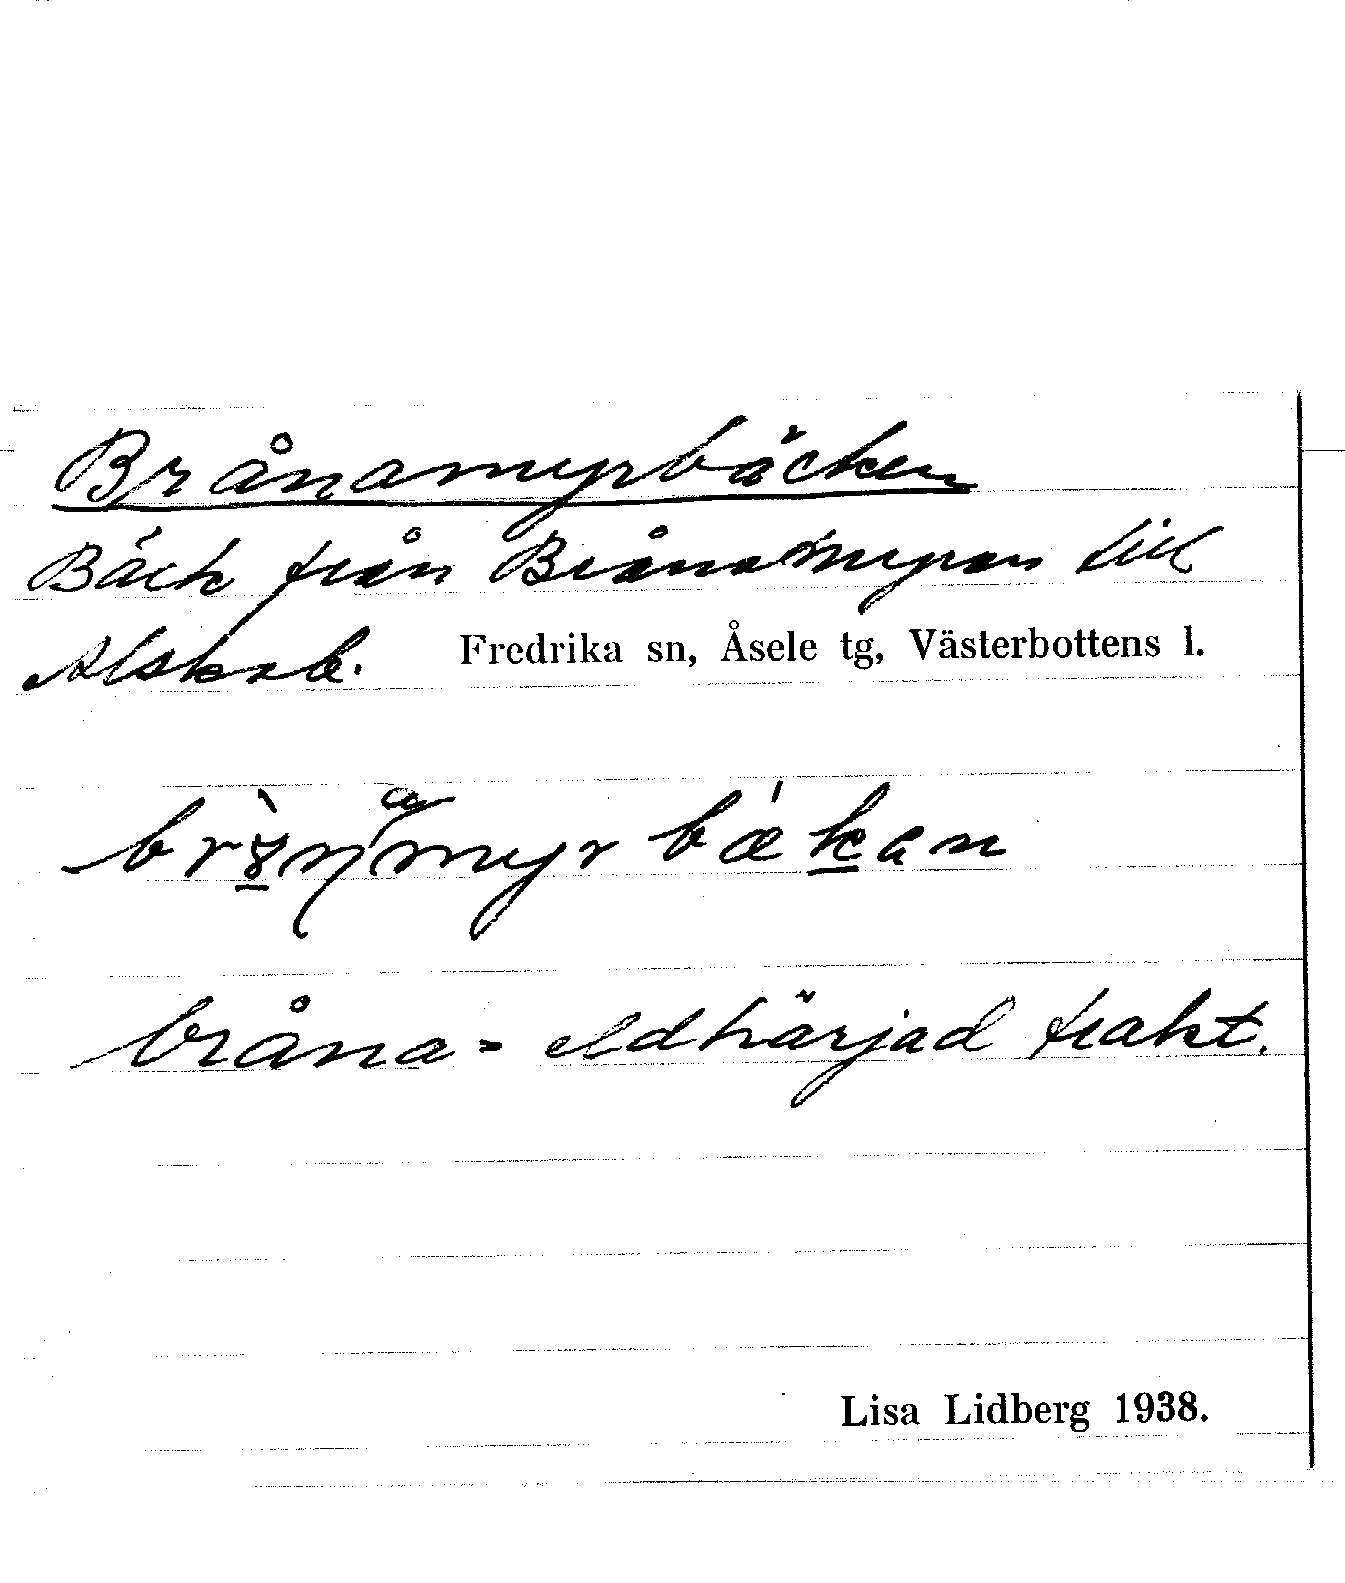 Brånamyrbäcken
Bäck från Brånamyran till
Alskab. Fredrika sn, Åsele tg, Västerbottens l.
bråna = eldhärjad trakt.
Lisa Lidberg 1938.